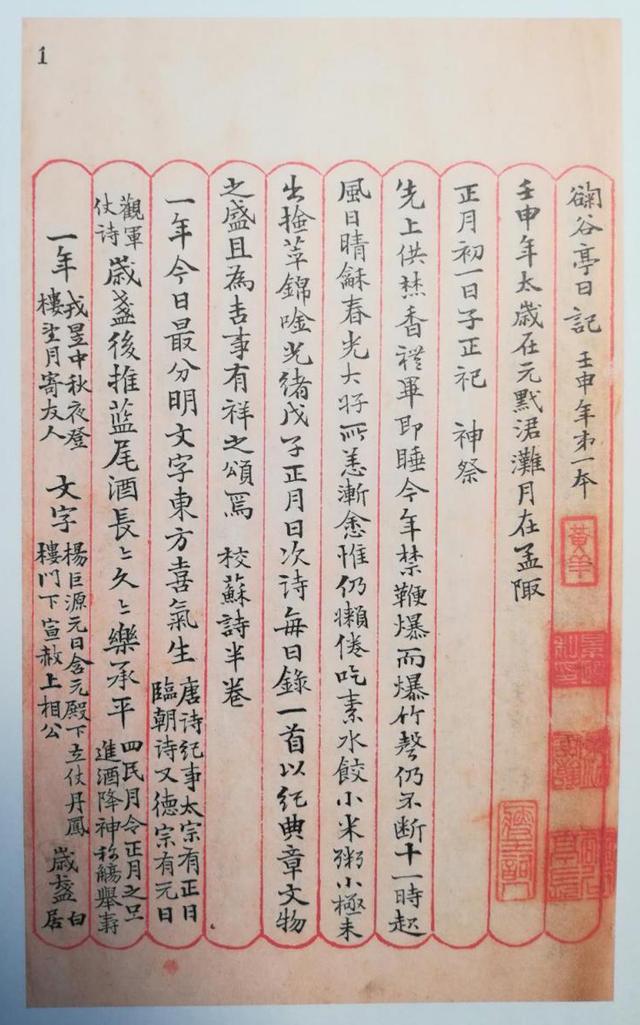 1
谷亭日記 壬申年第一本
黃羊
壬申年太歲在元默涒灘月在孟陬
正月初一日子正祀 神祭
先上供焚香禮畢即睡今年禁鞭爆而爆竹聲仍不斷十一時起
風日晴龢春光大好所恙漸愈惟仍懶倦吃素水餃小米粥小極未
出撿萃錦唫光緒戊子正月日次詩每日錄一首以紀典章文物
之盛且為吉事有祥之頌焉 校蘇詩半卷
一年今日最分明文字東方喜氣生 唐詩紀事太宗有正日臨朝詩又德宗有元日
觀軍仗詩 歲盞後推藍尾酒長〻久〻樂承平 四民月令正月之旦進酒降神称觴舉壽
一年 戎昱中秋夜澄樓望月寄友人 文字 楊巨源元日含元殿下立仗丹鳳樓門下宣赦上相公 歲盞 白居